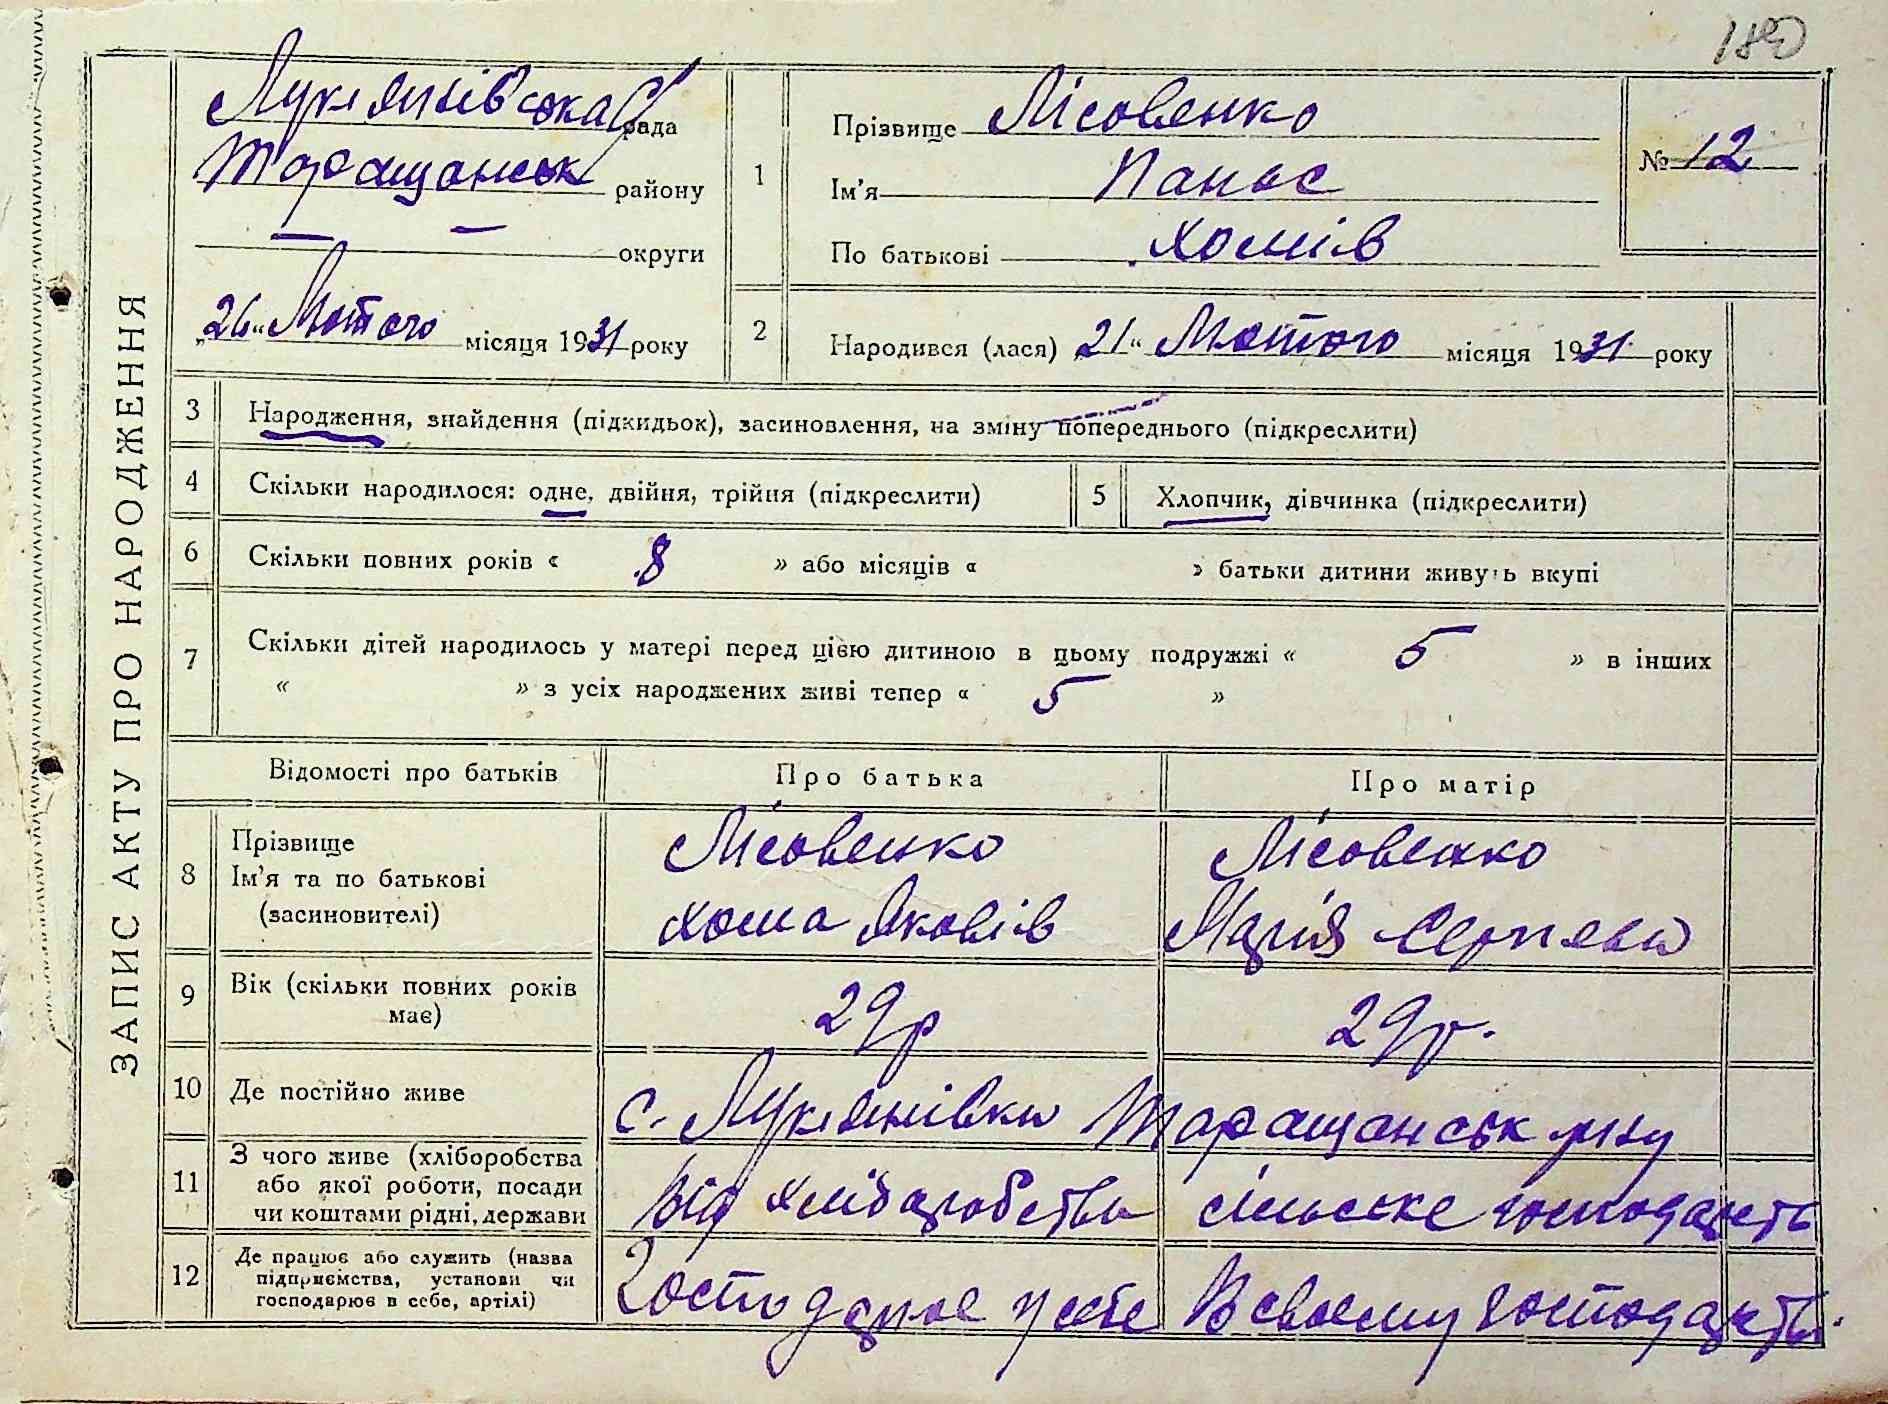 180
ЗАПИС АКТУ ПРО НАРОДЖЕННЯ
Лукянівська рада
Таращанськ району
— — округи
„26“ Лютого місяця 1931 року
1
Прізвище Лісовенко
Ім’я Панас
По батькові Хомів
№ 12
2
Народився (лася) 21“ Лютого місяця 1931 року
3 Народження, знайдення (підкидьок), засиновлення, на зміну попереднього (підкреслити)
4 Скільки народилося: одне, двійня, трійня (підкреслити)
5 Хлопчик, дівчинка (підкреслити)
6 Скільки повних років « 8 » або місяців « » батьки дитини живуть вкупі
7 Скільки дітей народилось у матері перед цією дитиною в цьому подружжі « 5 » в інших
« » з усіх народжених живі тепер « 5 »
Відомості про батьків Про батька Про матір
8 Прізвище
Ім’я та по батькові
(засиновителі)
Лісовенко
Хома Яковів
Лісовенко
Марія
9 Вік (скільки повних років
має)
29 р
29 р.
10 Де постійно живе
с. Лукянівка Таращанськ р-ну
11 З чого живе (хліборобства
або якої роботи, посади
чи коштами рідні, держави
від хліборобства
сільське господарств
12 Де працює або служить (назва
підприємства, установи чи
господарює в себе, артілі)
Господарює у себе
В своєму господарств.